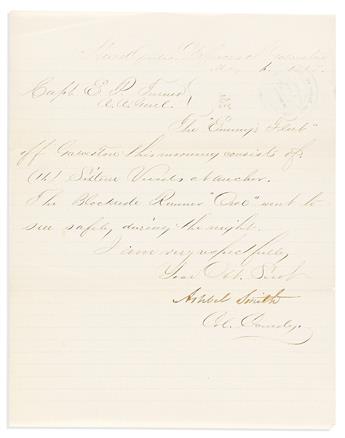 Head Quarters Defences of Galveston
May
Capt. E. P. Turner
A. A. Genl.
The "Enemy's Fleet"
off Galveston this morning consists of
Vessels at anchor.
The Blockade Runner went to
sea safely during the night.
I am very respectfully
Your Obt. Servt
Ashbel Smith
Col. Comdg.